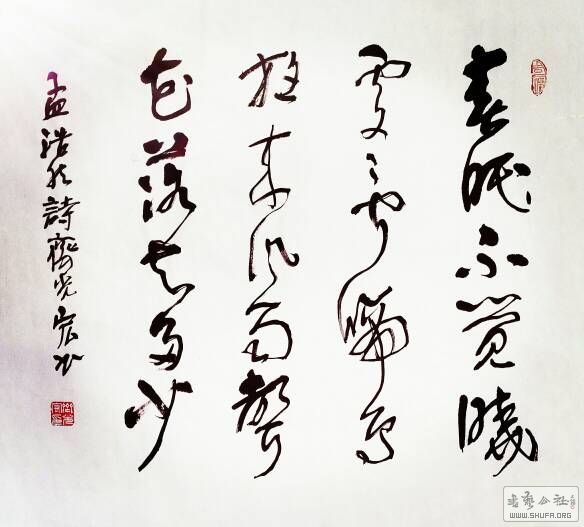 春眠不觉曉
處々闻啼鸟
夜来风雨聲
花落知多少
孟浩然詩齊光书
书艺公社
WWW.SHUFA.ORG